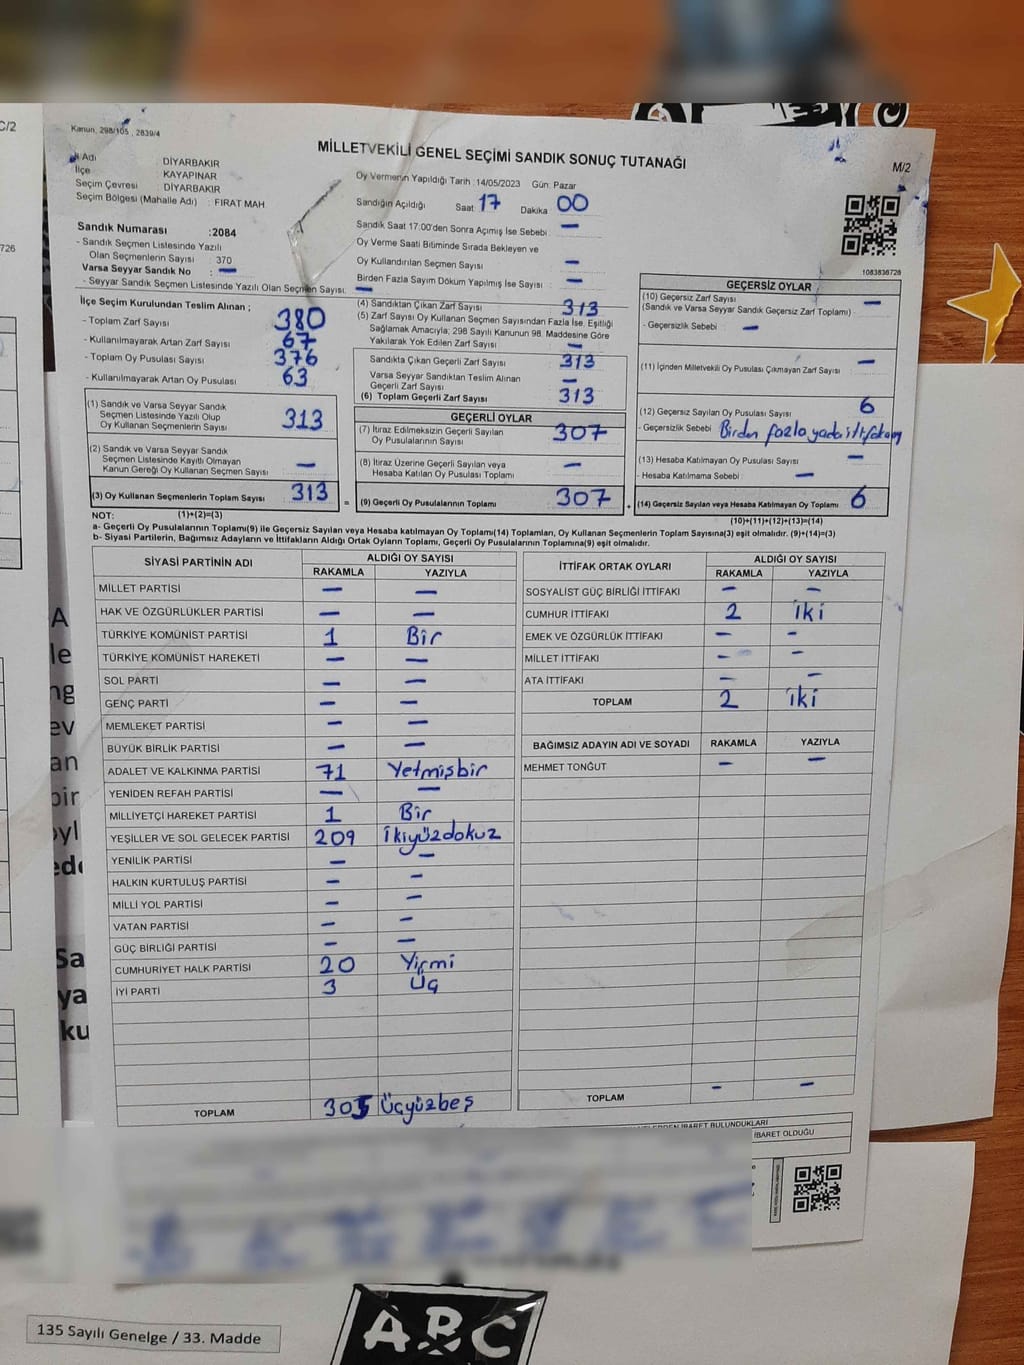 C/2
726
Kanun, 298/105 , 2839/4
MİLLETVEKİLİ GENEL SEÇİMİ SANDIK SONUÇ TUTANAĞI
M/2
İl Adı : DİYARBAKIR
İlçe : KAYAPINAR
Seçim Çevresi : DİYARBAKIR
Seçim Bölgesi (Mahalle Adı) : FIRAT MAH
Oy Vermenin Yapıldığı Tarih :14/05/2023 Gün: Pazar
Sandığın Açıldığı Saat 17 Dakika 00
Sandık Saat 17:00'den Sonra Açımış İse Sebebi: —
Oy Verme Saati Bitiminde Sırada Bekleyen ve
Oy Kullandırılan Seçmen Sayısı —
Birden Fazla Sayım Döküm Yapılmış İse Sayısı : —
Sandık Numarası :2084
- Sandık Seçmen Listesinde Yazılı
Olan Seçmenlerin Sayısı : 370
Varsa Seyyar Sandık No : —
- Seyyar Sandık Seçmen Listesinde Yazılı Olan Seçmen Sayısı: —
1083836728
İlçe Seçim Kurulundan Teslim Alınan ;
- Toplam Zarf Sayısı : 380
- Kullanılmayarak Artan Zarf Sayısı : 67
- Toplam Oy Pusulası Sayısı : 376
- Kullanılmayarak Artan Oy Pusulası : 63
(1) Sandık ve Varsa Seyyar Sandık
Seçmen Listesinde Yazılı Olup
Oy Kullanan Seçmenlerin Sayısı 313
(2) Sandık ve Varsa Seyyar Sandık
Seçmen Listesinde Kayıtlı Olmayan
Kanun Gereği Oy Kullanan Seçmen Sayısı —
(3) Oy Kullanan Seçmenlerin Toplam Sayısı 313
(1)+(2)=(3)
(4) Sandıktan Çıkan Zarf Sayısı 313
(5) Zarf Sayısı Oy Kullanan Seçmen Sayısından Fazla İse, Eşitliği
Sağlamak Amacıyla; 298 Sayılı Kanunun 98. Maddesine Göre
Yakılarak Yok Edilen Zarf Sayısı —
Sandıkta Çıkan Geçerli Zarf Sayısı 313
Varsa Seyyar Sandıktan Teslim Alınan
Geçerli Zarf Sayısı —
(6) Toplam Geçerli Zarf Sayısı 313
GEÇERLİ OYLAR
(7) İtiraz Edilmeksizin Geçerli Sayılan
Oy Pusulalarının Sayısı 307
(8) İtiraz Üzerine Geçerli Sayılan veya
Hesaba Katılan Oy Pusulası Toplamı —
= (9) Geçerli Oy Pusulalarının Toplamı 307
GEÇERSİZ OYLAR
(10) Geçersiz Zarf Sayısı —
(Sandık ve Varsa Seyyar Sandık Geçersiz Zarf Toplamı) :
- Geçersizlik Sebebi : —
(11) İçinden Milletvekili Oy Pusulası Çıkmayan Zarf Sayısı —
(12) Geçersiz Sayılan Oy Pusulası Sayısı 6
- Geçersizlik Sebebi : Birden fazla yada ittifakam
(13) Hesaba Katılmayan Oy Pusulası Sayısı —
- Hesaba Katılmama Sebebi : —
+ (14) Geçersiz Sayılan veya Hesaba Katılmayan Oy Toplamı 6
(10)+(11)+(12)+(13)=(14)
NOT:
a- Geçerli Oy Pusulalarının Toplamı(9) ile Geçersiz Sayılan veya Hesaba katılmayan Oy Toplamı(14) Toplamları, Oy Kullanan Seçmenlerin Toplam Sayısına(3) eşit olmalıdır. (9)+(14)=(3)
b- Siyasi Partilerin, Bağımsız Adayların ve İttifakların Aldığı Ortak Oyların Toplamı, Geçerli Oy Pusulalarının Toplamına(9) eşit olmalıdır.
SİYASİ PARTİNİN ADI ALDIĞI OY SAYISI
RAKAMLA YAZIYLA
MİLLET PARTİSİ — —
HAK VE ÖZGÜRLÜKLER PARTİSİ — —
TÜRKİYE KOMÜNİST PARTİSİ 1 Bir
TÜRKİYE KOMÜNİST HAREKETİ — —
SOL PARTİ — —
GENÇ PARTİ — —
MEMLEKET PARTİSİ — —
BÜYÜK BİRLİK PARTİSİ — —
ADALET VE KALKINMA PARTİSİ 71 Yetmişbir
YENİDEN REFAH PARTİSİ — —
MİLLİYETÇİ HAREKET PARTİSİ 1 Bir
YEŞİLLER VE SOL GELECEK PARTİSİ 209 ikiyüzdokuz
YENİLİK PARTİSİ — —
HALKIN KURTULUŞ PARTİSİ — —
MİLLİ YOL PARTİSİ — —
VATAN PARTİSİ — —
GÜÇ BİRLİĞİ PARTİSİ — —
CUMHURİYET HALK PARTİSİ 20 Yirmi
İYİ PARTİ 3 Üç
TOPLAM 305 Üçyüzbeş
İTTİFAK ORTAK OYLARI ALDIĞI OY SAYISI
RAKAMLA YAZIYLA
SOSYALİST GÜÇ BİRLİĞİ İTTİFAKI — —
CUMHUR İTTİFAKI 2 iki
EMEK VE ÖZGÜRLÜK İTTİFAKI — —
MİLLET İTTİFAKI — —
ATA İTTİFAKI — —
TOPLAM 2 iki
BAĞIMSIZ ADAYIN ADI VE SOYADI RAKAMLA YAZIYLA
MEHMET TONĞUT — —
TOPLAM — —
İBARET BULUNDUKLARI
İBARET OLDUĞU
A
le
ng
ev
an
bir
oyl
ede
Sa
ya
ku
135 Sayılı Genelge / 33. Madde
ABC